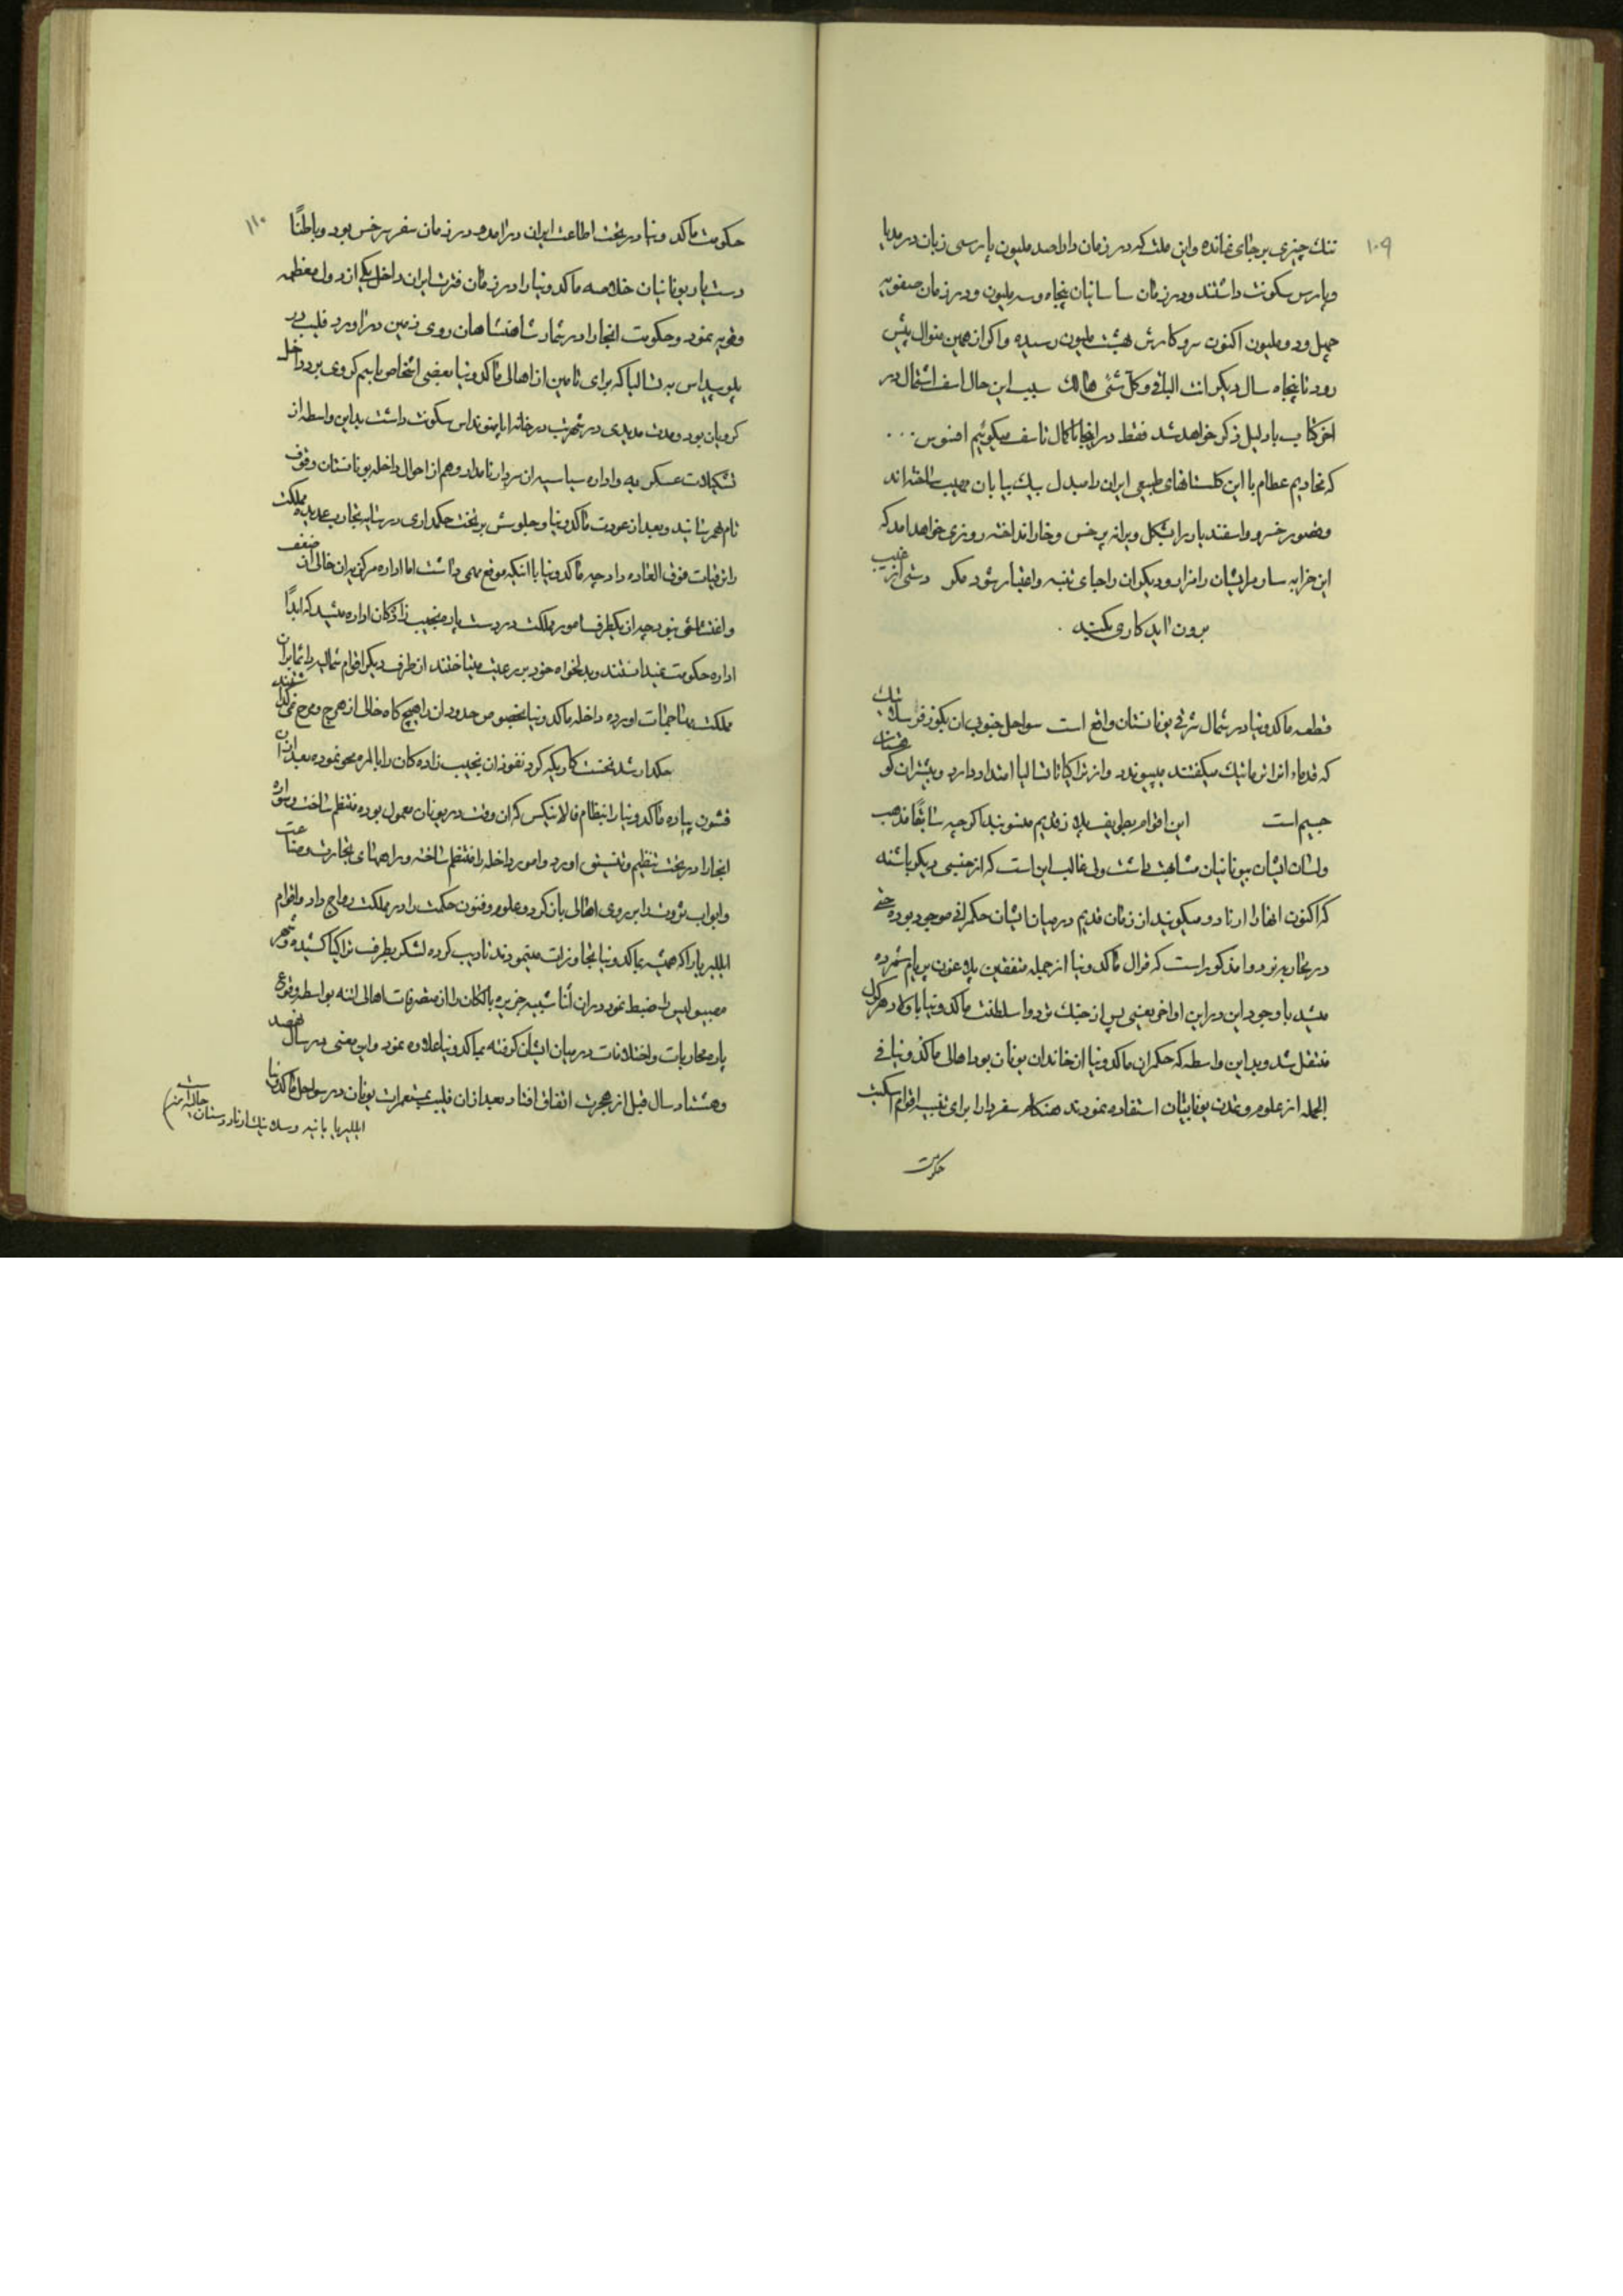 ۱۰۹
تنك چیزی بر جای نمانده و این ملت که در زمان دارا صد ملیون پارسی زبان در مدیا
و پارس سکونت داشتند و در زمان ساسانیان پنجاه و سه ملیون و در زمان صفویه
چهل و دو ملیون اکنون سر و کارش بهشت ملیون رسیده و اکر از همین منوال پیش
رود تا پنجاه سال دیکر انت الباقی و کل شئی هالك سبب این حال اسف اشتمال در
اخر کتاب با دلیل ذکر خواهد شد فقط در اینجا با کمال تاسف میکوئیم افسوس ...
که نخادیم عظام با این کلستانهای طبیعی ایران را مبدل بیك بیابان مهیب ساخته اند
و قصور خسرو و اسفندیار را بشکل ویرانه پر خس و خار انداخته روزی خواهد امد که
این خرابه سار مر ایشان را نزار و دیکران را جای تنبه و اعتبار شود مکر دستی از غیب
برون اید کاری بکند .
قطعه ماکدونیا در شمال شرقی یونانستان واقع است سواحل جنوبی ان بکوزفر سلانیك
که قدماء انرا ترمانیك میکفتند میپیوندد و از تراکیا تا تسالیا امتداد دارد و بیشتر ان کوهستان
جسیم است این اقوام بطوایف پلازقدیم منسوبند اکرچه سابقًا مذهب
و لسان ایشان بیونانیان مشابهت داشت ولی غالب این است که از جنسی دیکر باشند
که اکنون انها را ارناود میکویند از زمان قدیم در میان ایشان حکمرانی موجود بوده حتی
در محاربه تروا مذکور است که قرال ماکدونیا از جمله متفقین پلاغنون پریام شمرده
میشد با وجود این در این اواخر یعنی پس از جنك تروا سلطنت ماکدونیا باولاد هرکل
منتقل شد و بداین واسطه که حکمران ماکدونیا از خاندان یونان بود اهالی ماکدونیا فی
الجمله از علوم و تمدن یونانیان استفاده نمودند هنکام سفر دارا برای تنبیه اقوام اسکیت
حکومت
۱۱۰
حکومت ماکدونیا در تحت اطاعت ایران درامد و در زمان سفر سرخس بود و باطنًا
دستیار یونانیان خلاصه ماکدونیا را در زمان فترت ایران داخل یکی از دول معظمه
و قویه نمود و حکومت انجا را در شمار شاهنشاهان روی زمین دراورد فلیپ در
پلوپیداس به تسالیا که برای تامین از اهالی ماکدونیا بعضی اشخاص باسم کروی برد داخل
کرویان بود و مدت مدیدی در شهر تب در خانه اپامینونداس سکونت داشت بداین واسطه از
تشکیلات عسکریه و اداره سیاسیه ان سردار نامدار و هم از احوال داخله یونانستان وقوف
تام بهمرسانید و بعد از عودت ماکدونیا و جلوسش بر تخت حکمداری در سایه تجارب عدیده مملکت
را ترقیات فوق العاده داد چه ماکدونیا با انکه موقع مهمی داشت اما اداره مرکزیه ان خالی از ضعف
و اغتشاشی نبود چه از یکطرف امور مملکت در دست پاره نجیب زادکان اداره میشد که ابدًا
اداره حکومت نمیدانستند و بدلخواه خود بر رعیت میتاختند از طرف دیکر اقوام شمالیه دائما بران
مملکت مهاجمات اورده داخله ماکدونیا بخصوص حدود ان را هیچ کاه خالی از هرج و مرج نمیکذاشتند
حکمدار شد نخست کاریکه کرد نفوذ ان نجیب زاده کان را بالمره محو نموده بعد از ان
قشون پیاده ماکدونیا را بنظام فالانیکس که ان وقت در یونان معمول بوده منتظم ساخت و سواره
انجا را در تحت تنظیم و تنسیق اورد و امور داخله را منتظم ساخته و راههای تجارت و صناعت
و ابواب ثروت را بروی اهالی باز کرد و علوم و فنون حکمت را در مملکت رواج داد و اقوام
ایللیریا را که همیشه بماکدونیا تجاوزات مینمودند تادیب کرده لشکر بطرف تراکیا کشیده و شهر
امفیپولیس را ضبط نمود در ان اثنا شبیه جزیره بالکان را از متصرفات اهالی اتنه بواسطه وقوع
پاره محاربات و اختلافات در میان ایشان کرفته بماکدونیا علاوه نمود و این معنی در سال نهصد
و هشتاد سال قبل از هجرت اتفاق افتاد بعد از ان فلیپ بمستعمرات یونان در سواحل ماکدونیا
ایللیریا بانیه و سلانیك ارناودستان